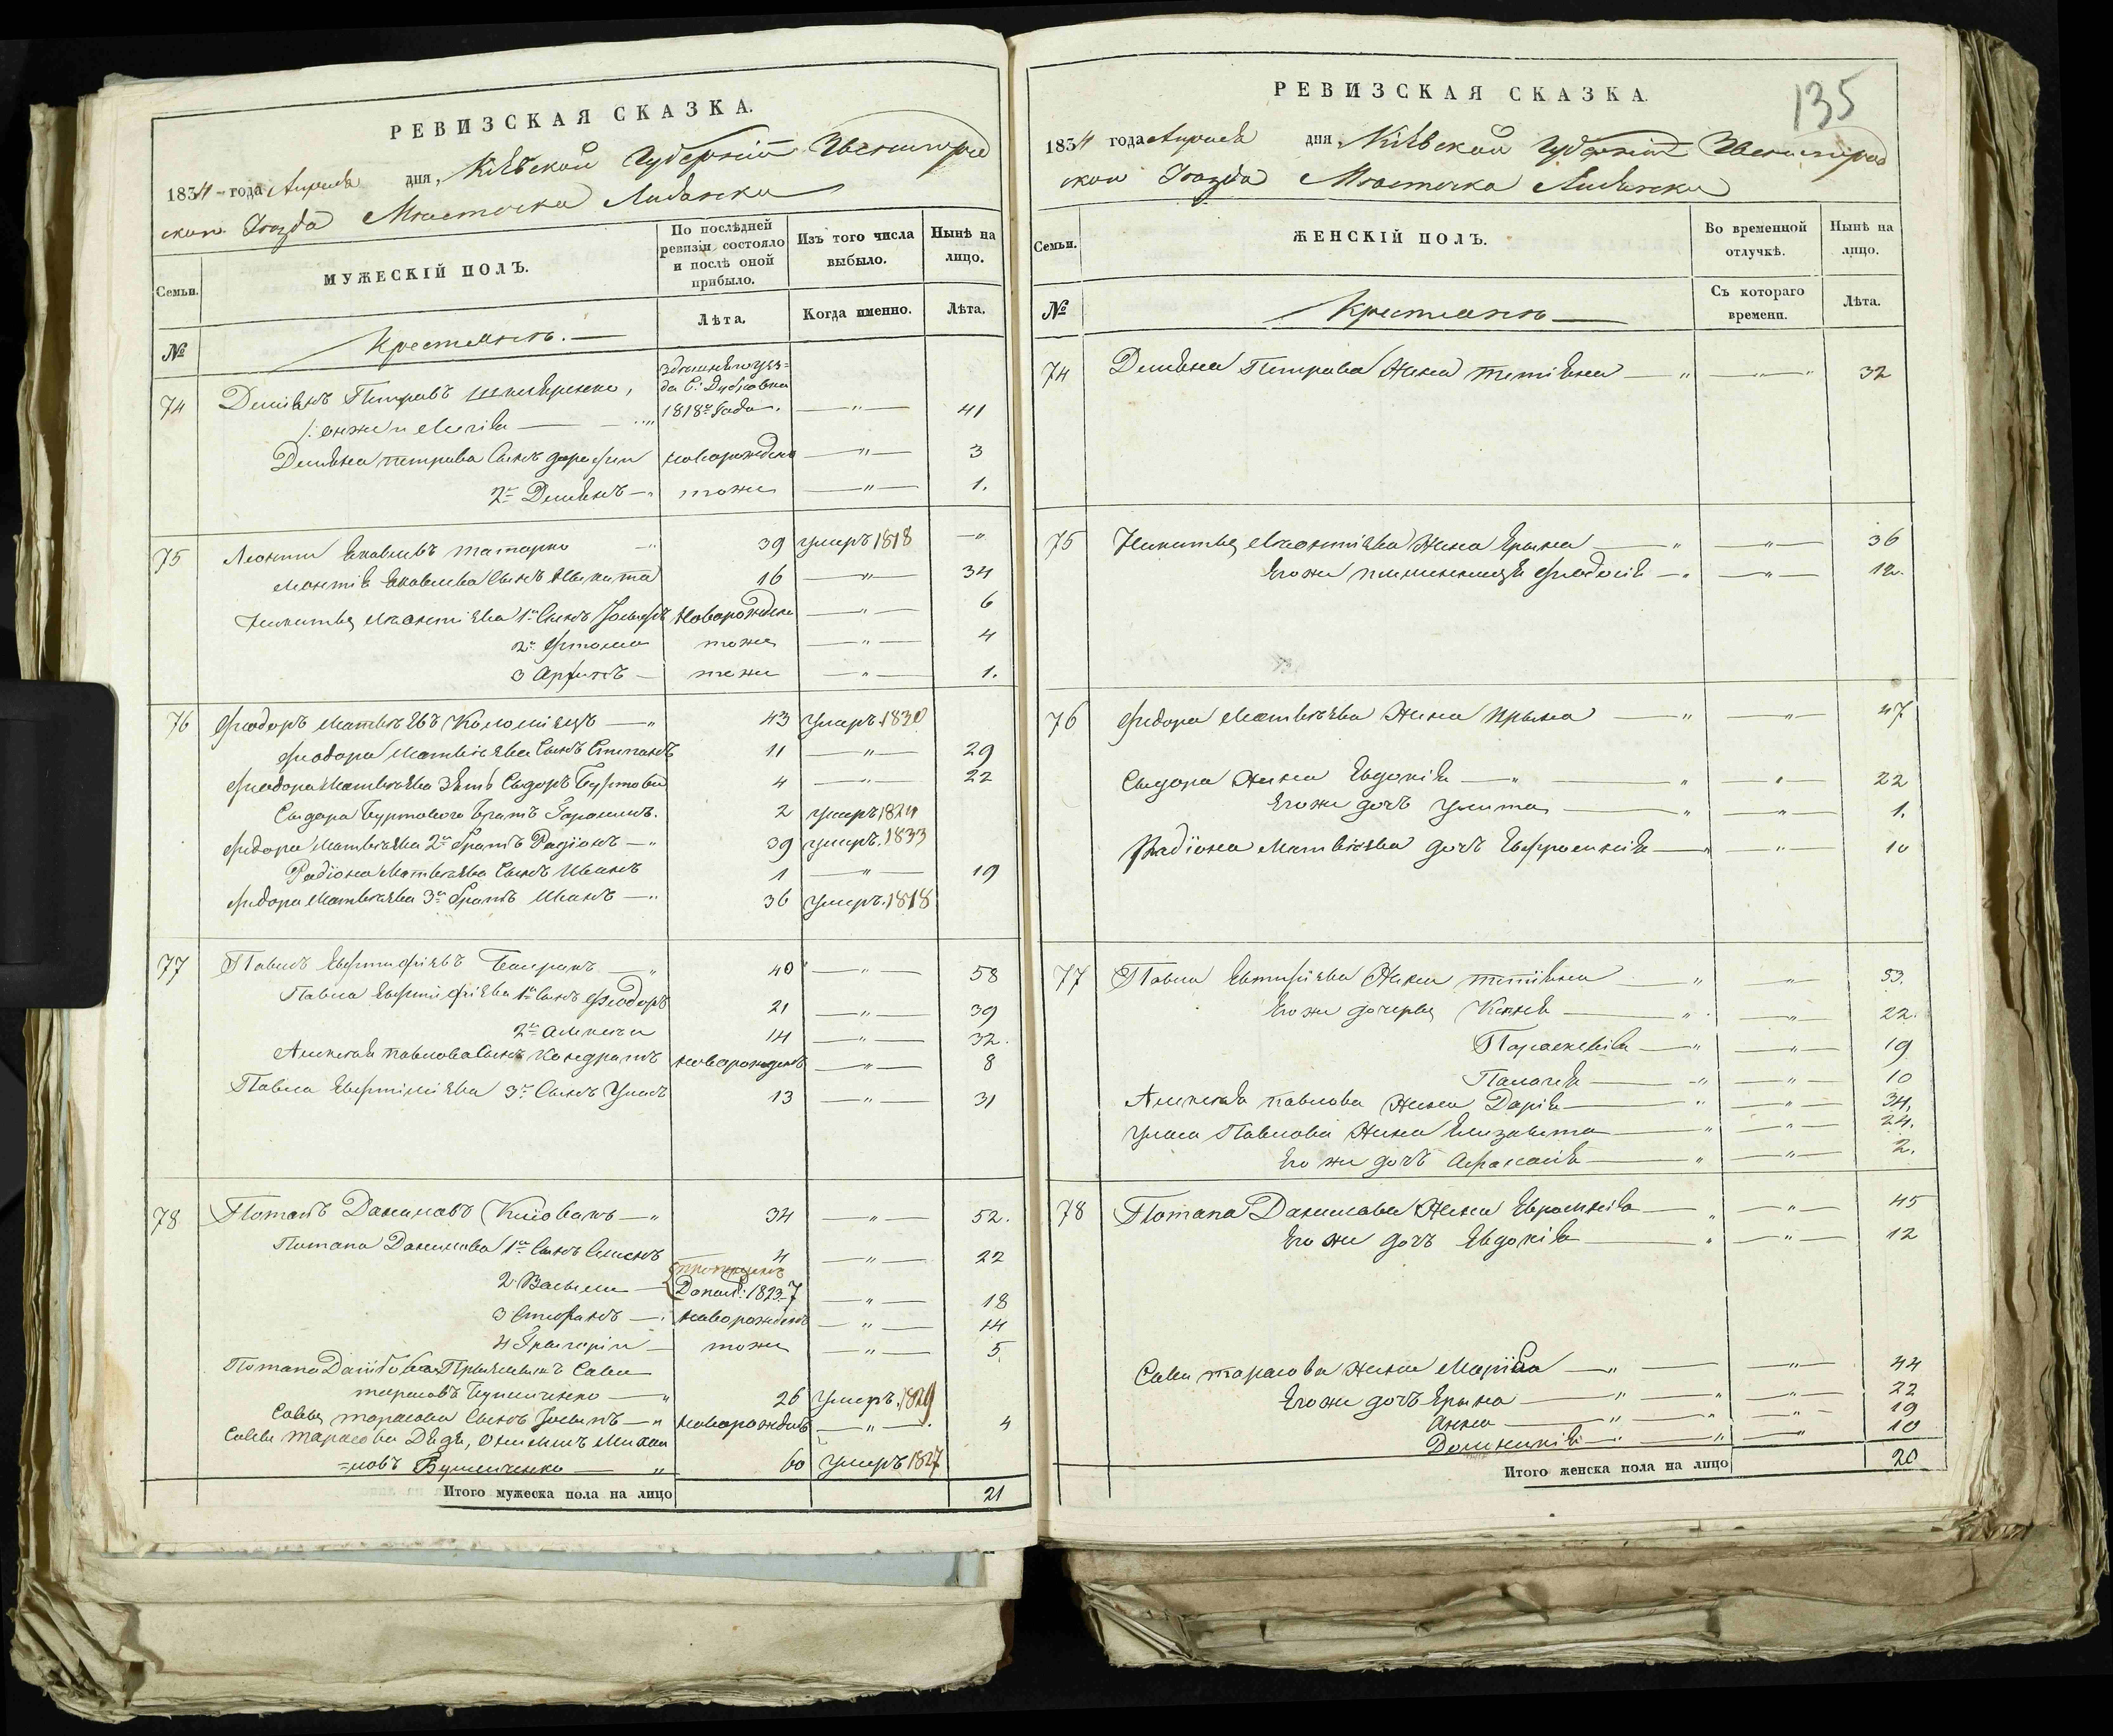 РЕВИЗСКАЯ СКАЗКА.
1834 года Апреля дня, Кіевской Губерніи Звенигород
ской Уезда Мѣстечка Лисянки
Семьи.
МУЖЕСКІЙ ПОЛЪ.
По послѣдней ревизіи состояло и послѣ оной прибыло.
Изъ того числа выбыло.
Нынѣ на лицо.
№
Крестьянъ.
Лѣта.
Когда именно.
Лѣта.
74 Деміянъ Петровъ
1818го года. — " — 41
Деміяна Петрова сынъ новорожденъ — " — 3
2й Деміянъ — тоже — " — 1.
75 Леонтій Яковлевъ Татарко 39 умеръ 1818 — "
Леонтія Яковлева сынъ Никита 16 — " — 34
Никиты Леонтіева 1й сынъ Іосифъ новорожденъ — " — 6
2й тоже — " — 4
3 тоже — " — 1.
76 Феодоръ Матвѣевъ Коломіецъ — " 43 умеръ 1830
Феодора Матвѣева сынъ Степанъ 11 — " — 29
Феодора Матвѣева Зять Сидоръ 4 — " — 22
Сидора братъ Герасимъ. 2 умеръ 1824
Федора Матвѣева 2й братъ Радіонъ — " 39 умеръ. 1833
Радіона Матвѣева сынъ Иванъ 1 — " — 19
Федора Матвѣева 3й братъ Иванъ — " 36 умеръ. 1818
77 Павелъ — " 40 — " — 58
Павла 1й сынъ Феодоръ 21 — " — 39
2й Алексѣй 14 — " — 32.
Алексѣя Павлова сынъ Кондратъ новорожденъ — " — 8
Павла 3й сынъ Уласъ 13 — " — 31
78 Потапъ Даниловъ — " 34 — " — 52.
Потапа Данилова 1й сынъ 4 — " — 22
2 Василій — 1823 7 — " — 18
3 Стефанъ — новорожденъ — " — 14
4 Григорій — тоже — " — 5.
Потапа Савва
Тарасовъ — " 26 умеръ. 1829
Саввы Тарасова сынъ — " новорожденъ — " — 4
Саввы Тарасова Дядя,
— " 60 умеръ 1827
Итого мужеска пола на лицо 21
135
РЕВИЗСКАЯ СКАЗКА.
1834 года Апреля дня, Кіевской Губерніи Звенигород
ской Уезда Мѣстечка Лисянки
Семьи.
ЖЕНСКІЙ ПОЛЪ.
Во временной отлучкѣ.
Нынѣ на лицо.
№
Крестьянъ
Съ котораго времени.
Лѣта.
74 Деміяна Петрова Жена Тетіяна — " — " 32
75 Никиты Леонтіева Жена Ярына — " — " — 36
Его же племянница Феодосія — " — " — 12.
76 Федора Матвѣева Жена Ирына — " — " — 47
Сидора Жена Евдокія — " — " — " — 22
Его же дочь Улита — " — " — 1.
Радіона Матвѣева дочь Евфросинія — " — " — 10
77 Павла Жена Тетіяна — " — " — 53.
Его же дочери Ксенія — " — " — 22.
Параскевія — " — " — 19
Палагія — " — " — 10
Алексѣя Павлова Жена Дарія — " — " — 34.
Уласа Павлова Жена Елизавета — " — " — 24.
Его же дочь Афанасія — " — " — 2.
78 Потапа Данилова Жена Евросинія — " — " — 45
Его же дочь Евдокія — " — " — 12
Саввы Тарасова Жена Марія — " — " — 44
Его же дочь Ярына — " — " — " — 22
Анна — " — " — " — 19
Домникія — " — " — " — 10
Итого женска пола на лицо 20